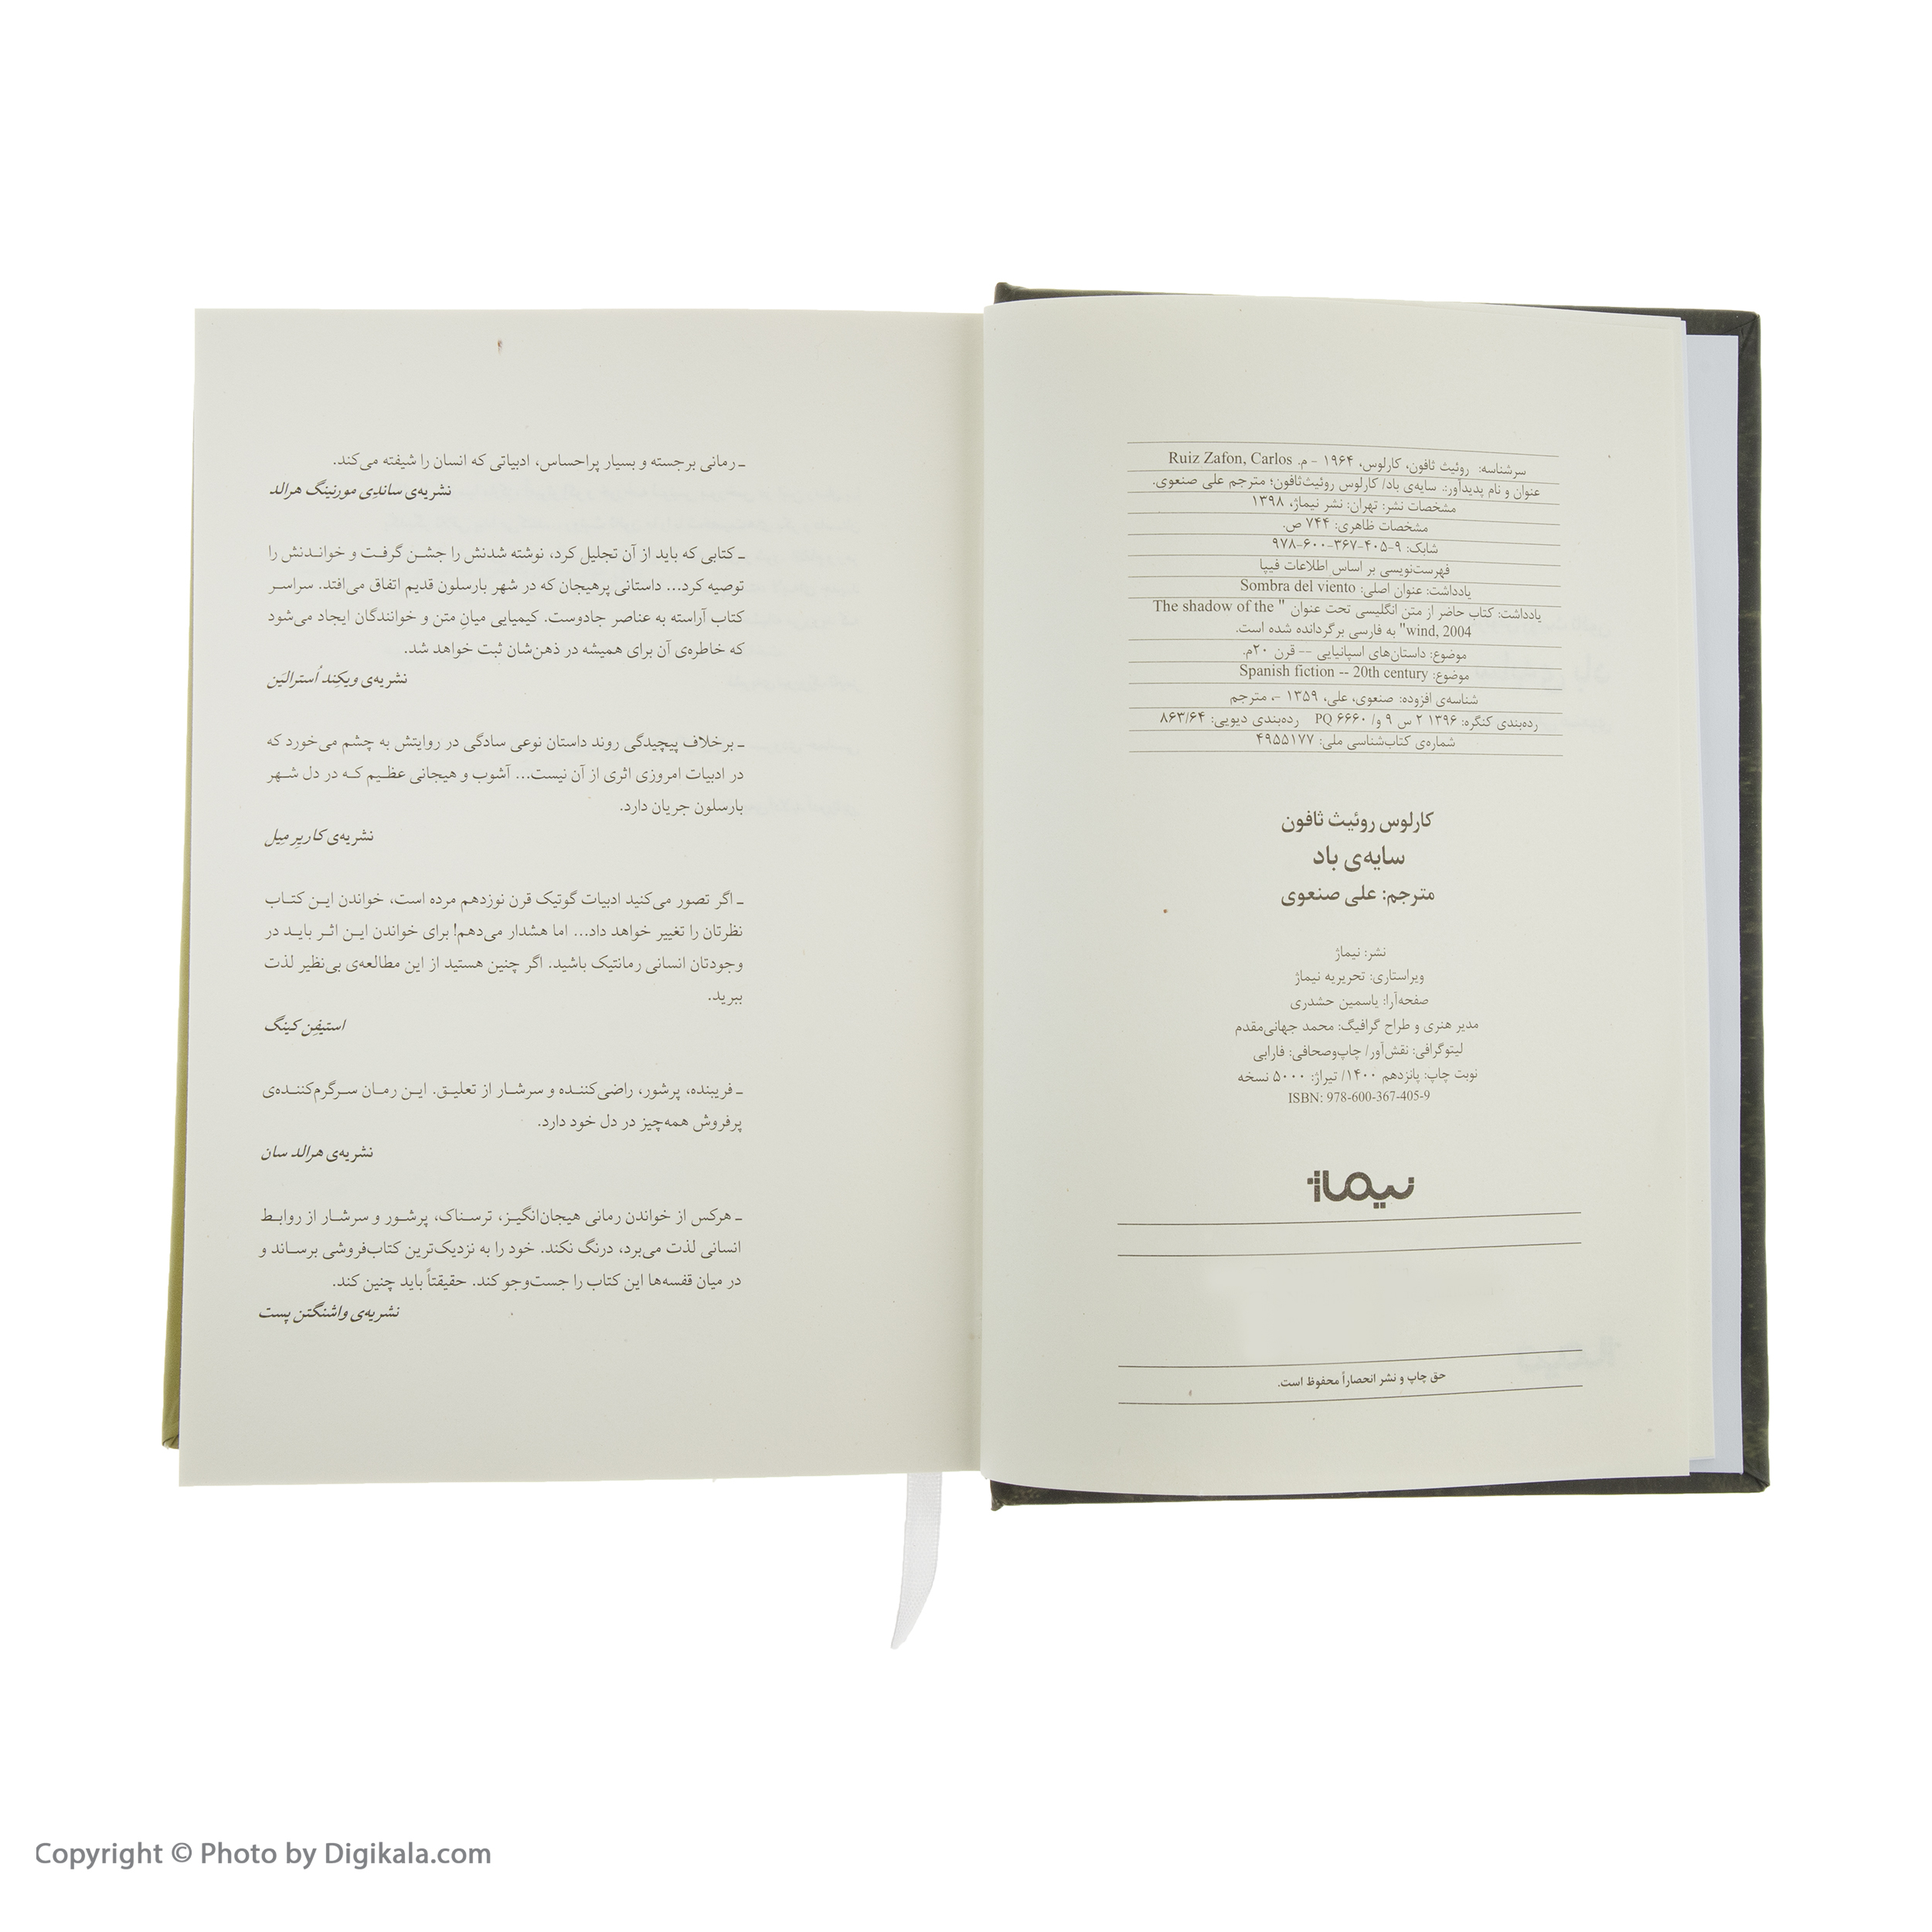 سرشناسه: روئیث ثافون، کارلوس، ۱۹۶۴ - م. Ruiz Zafon, Carlos
عنوان و نام پدیدآور: سایه‌ی باد/ کارلوس روئیث‌ثافون؛ مترجم علی صنعوی.
مشخصات نشر: تهران: نشر نیماژ، ۱۳۹۸
مشخصات ظاهری: ۷۴۴ ص.
شابک: ۹-۴۰۵-۳۶۷-۶۰۰-۹۷۸
فهرست‌نویسی بر اساس اطلاعات فیپا
یادداشت: عنوان اصلی: Sombra del viento
یادداشت: کتاب حاضر از متن انگلیسی تحت عنوان " The shadow of the
wind, 2004" به فارسی برگردانده شده است.
موضوع: داستان‌های اسپانیایی -- قرن ۲۰م.
موضوع: Spanish fiction -- 20th century
شناسه‌ی افزوده: صنعوی، علی، ۱۳۵۹ -، مترجم
رده‌بندی کنگره: ۱۳۹۶ ۲ س ۹ و/ PQ ۶۶۶۰ رده‌بندی دیویی: ۸۶۳/۶۴
شماره‌ی کتاب‌شناسی ملی: ۴۹۵۵۱۷۷
کارلوس روئیث ثافون
سایه‌ی باد
مترجم: علی صنعوی
نشر: نیماژ
ویراستاری: تحریریه نیماژ
صفحه‌آرا: یاسمین حشدری
مدیر هنری و طراح گرافیگ: محمد جهانی‌مقدم
لیتوگرافی: نقش‌آور/ چاپ‌وصحافی: فارابی
نوبت چاپ: پانزدهم ۱۴۰۰/ تیراژ: ۵۰۰۰ نسخه
ISBN: 978-600-367-405-9
نیماژ
حق چاپ و نشر انحصاراً محفوظ است.
ـ رمانی برجسته و بسیار پراحساس، ادبیاتی که انسان را شیفته می‌کند.
نشریه‌ی ساندِی مورنینگ هرالد
ـ کتابی که باید از آن تجلیل کرد، نوشته شدنش را جشن گرفت و خواندنش را
توصیه کرد... داستانی پرهیجان که در شهر بارسلون قدیم اتفاق می‌افتد. سراسر
کتاب آراسته به عناصر جادوست. کیمیایی میانِ متن و خوانندگان ایجاد می‌شود
که خاطره‌ی آن برای همیشه در ذهن‌شان ثبت خواهد شد.
نشریه‌ی ویکِند اُسترالیَن
ـ برخلاف پیچیدگی روند داستان نوعی سادگی در روایتش به چشم می‌خورد که
در ادبیات امروزی اثری از آن نیست... آشوب و هیجانی عظیم که در دل شهر
بارسلون جریان دارد.
نشریه‌ی کاریرِ مِیل
ـ اگر تصور می‌کنید ادبیات گوتیک قرن نوزدهم مرده است، خواندن این کتاب
نظرتان را تغییر خواهد داد... اما هشدار می‌دهم! برای خواندن این اثر باید در
وجودتان انسانی رمانتیک باشید. اگر چنین هستید از این مطالعه‌ی بی‌نظیر لذت
ببرید.
استیفِن کینگ
ـ فریبنده، پرشور، راضی‌کننده و سرشار از تعلیق. این رمان سرگرم‌کننده‌ی
پرفروش همه‌چیز در دل خود دارد.
نشریه‌ی هرالد سان
ـ هرکس از خواندن رمانی هیجان‌انگیز، ترسناک، پرشور و سرشار از روابط
انسانی لذت می‌برد، درنگ نکند. خود را به نزدیک‌ترین کتاب‌فروشی برساند و
در میان قفسه‌ها این کتاب را جست‌وجو کند. حقیقتاً باید چنین کند.
نشریه‌ی واشنگتن پست
Copyright © Photo by Digikala.com